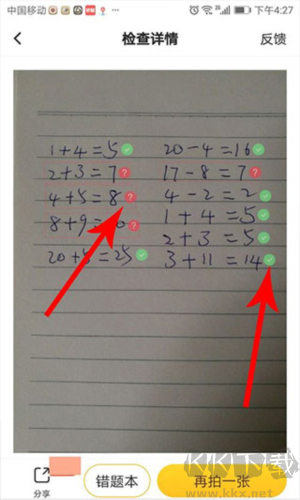 中国移动 下午4:27
检查详情 反馈
1+4=5 20-4=16
2+3=7 17-8=7
4+5=8 4-2=2
8+9= 1+4=5
2+3=5
20+5=25 3+11=14
KK下载
www.kkx.net
分享 错题本 再拍一张